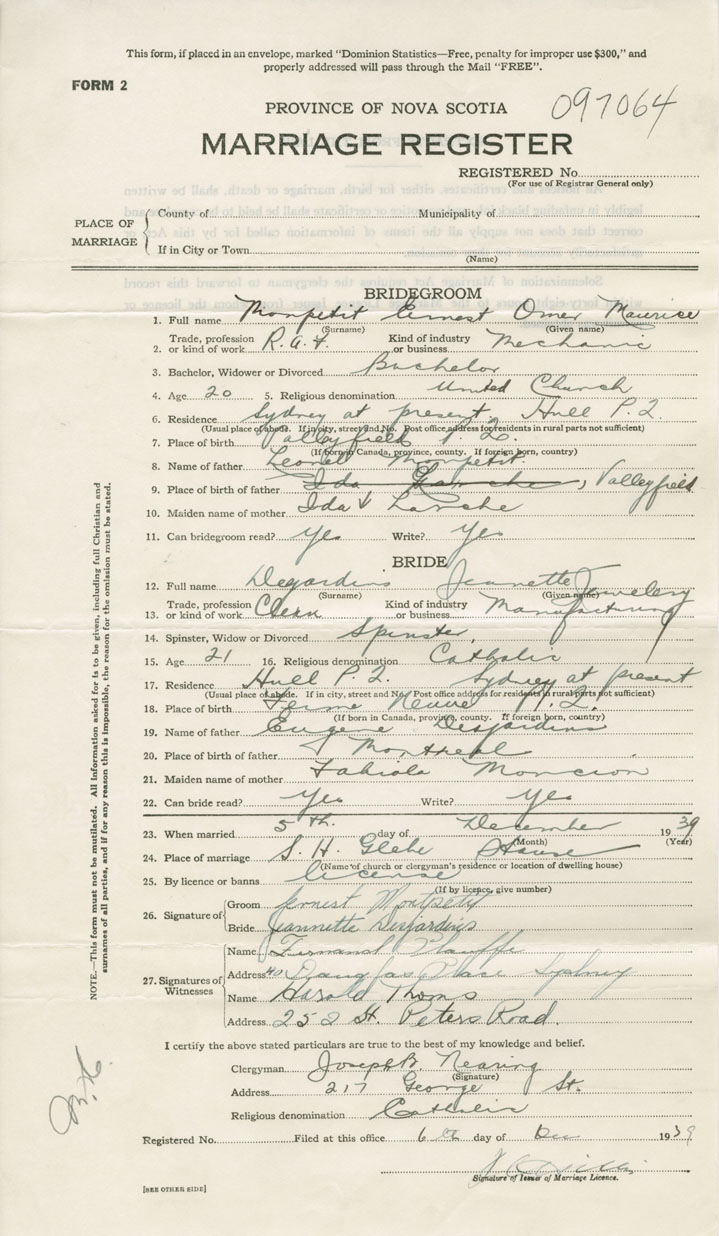 This form, if placed in an envelope, marked "Dominion Statistics—Free, penalty for improper use $300," and
properly addressed will pass through the Mail "FREE".
FORM 2
PROVINCE OF NOVA SCOTIA
097064
MARRIAGE REGISTER
REGISTERED No.
(For use of Registrar General only)
PLACE OF MARRIAGE
County of
Municipality of
If in City or Town
(Name)
BRIDEGROOM
1. Full name Monpetit Ernest Omer Maurice
(Surname) (Given name)
2. Trade, profession or kind of work R.A.F. Kind of industry or business Mechanic
3. Bachelor, Widower or Divorced Bachelor
4. Age 20 5. Religious denomination United Church
6. Residence Sydney at present, Hull P.Q.
(Usual place of abode. If in city, street and No. Post office address for residents in rural parts not sufficient)
7. Place of birth Valleyfield P.Q.
(If born in Canada, province, county. If foreign born, country)
8. Name of father Leonel Monpetit
9. Place of birth of father Ida, Valleyfield
10. Maiden name of mother Ida
11. Can bridegroom read? Yes Write? Yes
BRIDE
12. Full name Degardins Jeanette
(Surname) (Given name)
13. Trade, profession or kind of work Clerk Kind of industry or business Jewelery Manufacturing
14. Spinster, Widow or Divorced Spinster
15. Age 21 16. Religious denomination Catholic
17. Residence Hull P.Q. Sydney at present
(Usual place of abode. If in city, street and No. Post office address for residents in rural parts not sufficient)
18. Place of birth Ferme Neuve P.Q.
(If born in Canada, province, county. If foreign born, country)
19. Name of father Eugene Desjardins
20. Place of birth of father Montreal
21. Maiden name of mother Fabiola Moncion
22. Can bride read? Yes Write? Yes
23. When married 5th day of December 1939
(Month) (Year)
24. Place of marriage S. H. Glebe House
(Name of church or clergyman's residence or location of dwelling house)
25. By licence or banns license
(If by licence, give number)
26. Signature of
Groom Ernest Montpetit
Bride Jeannette Desjardins
27. Signatures of Witnesses
Name Fernand Plouffe
Address 40 Douglas Place Sydney
Name Harold Thoms
Address 252 St. Peters Road.
I certify the above stated particulars are true to the best of my knowledge and belief.
Clergyman Joseph B. Nearing
(Signature)
Address 217 George St.
Religious denomination Catholic
Registered No. Filed at this office 6th day of Dec 1939
Signature of Issuer of Marriage Licence.
[SEE OTHER SIDE]
NOTE.—This form must not be mutilated. All information asked for is to be given, including full Christian and
surnames of all parties, and if for any reason this is impossible, the reason for the omission must be stated.